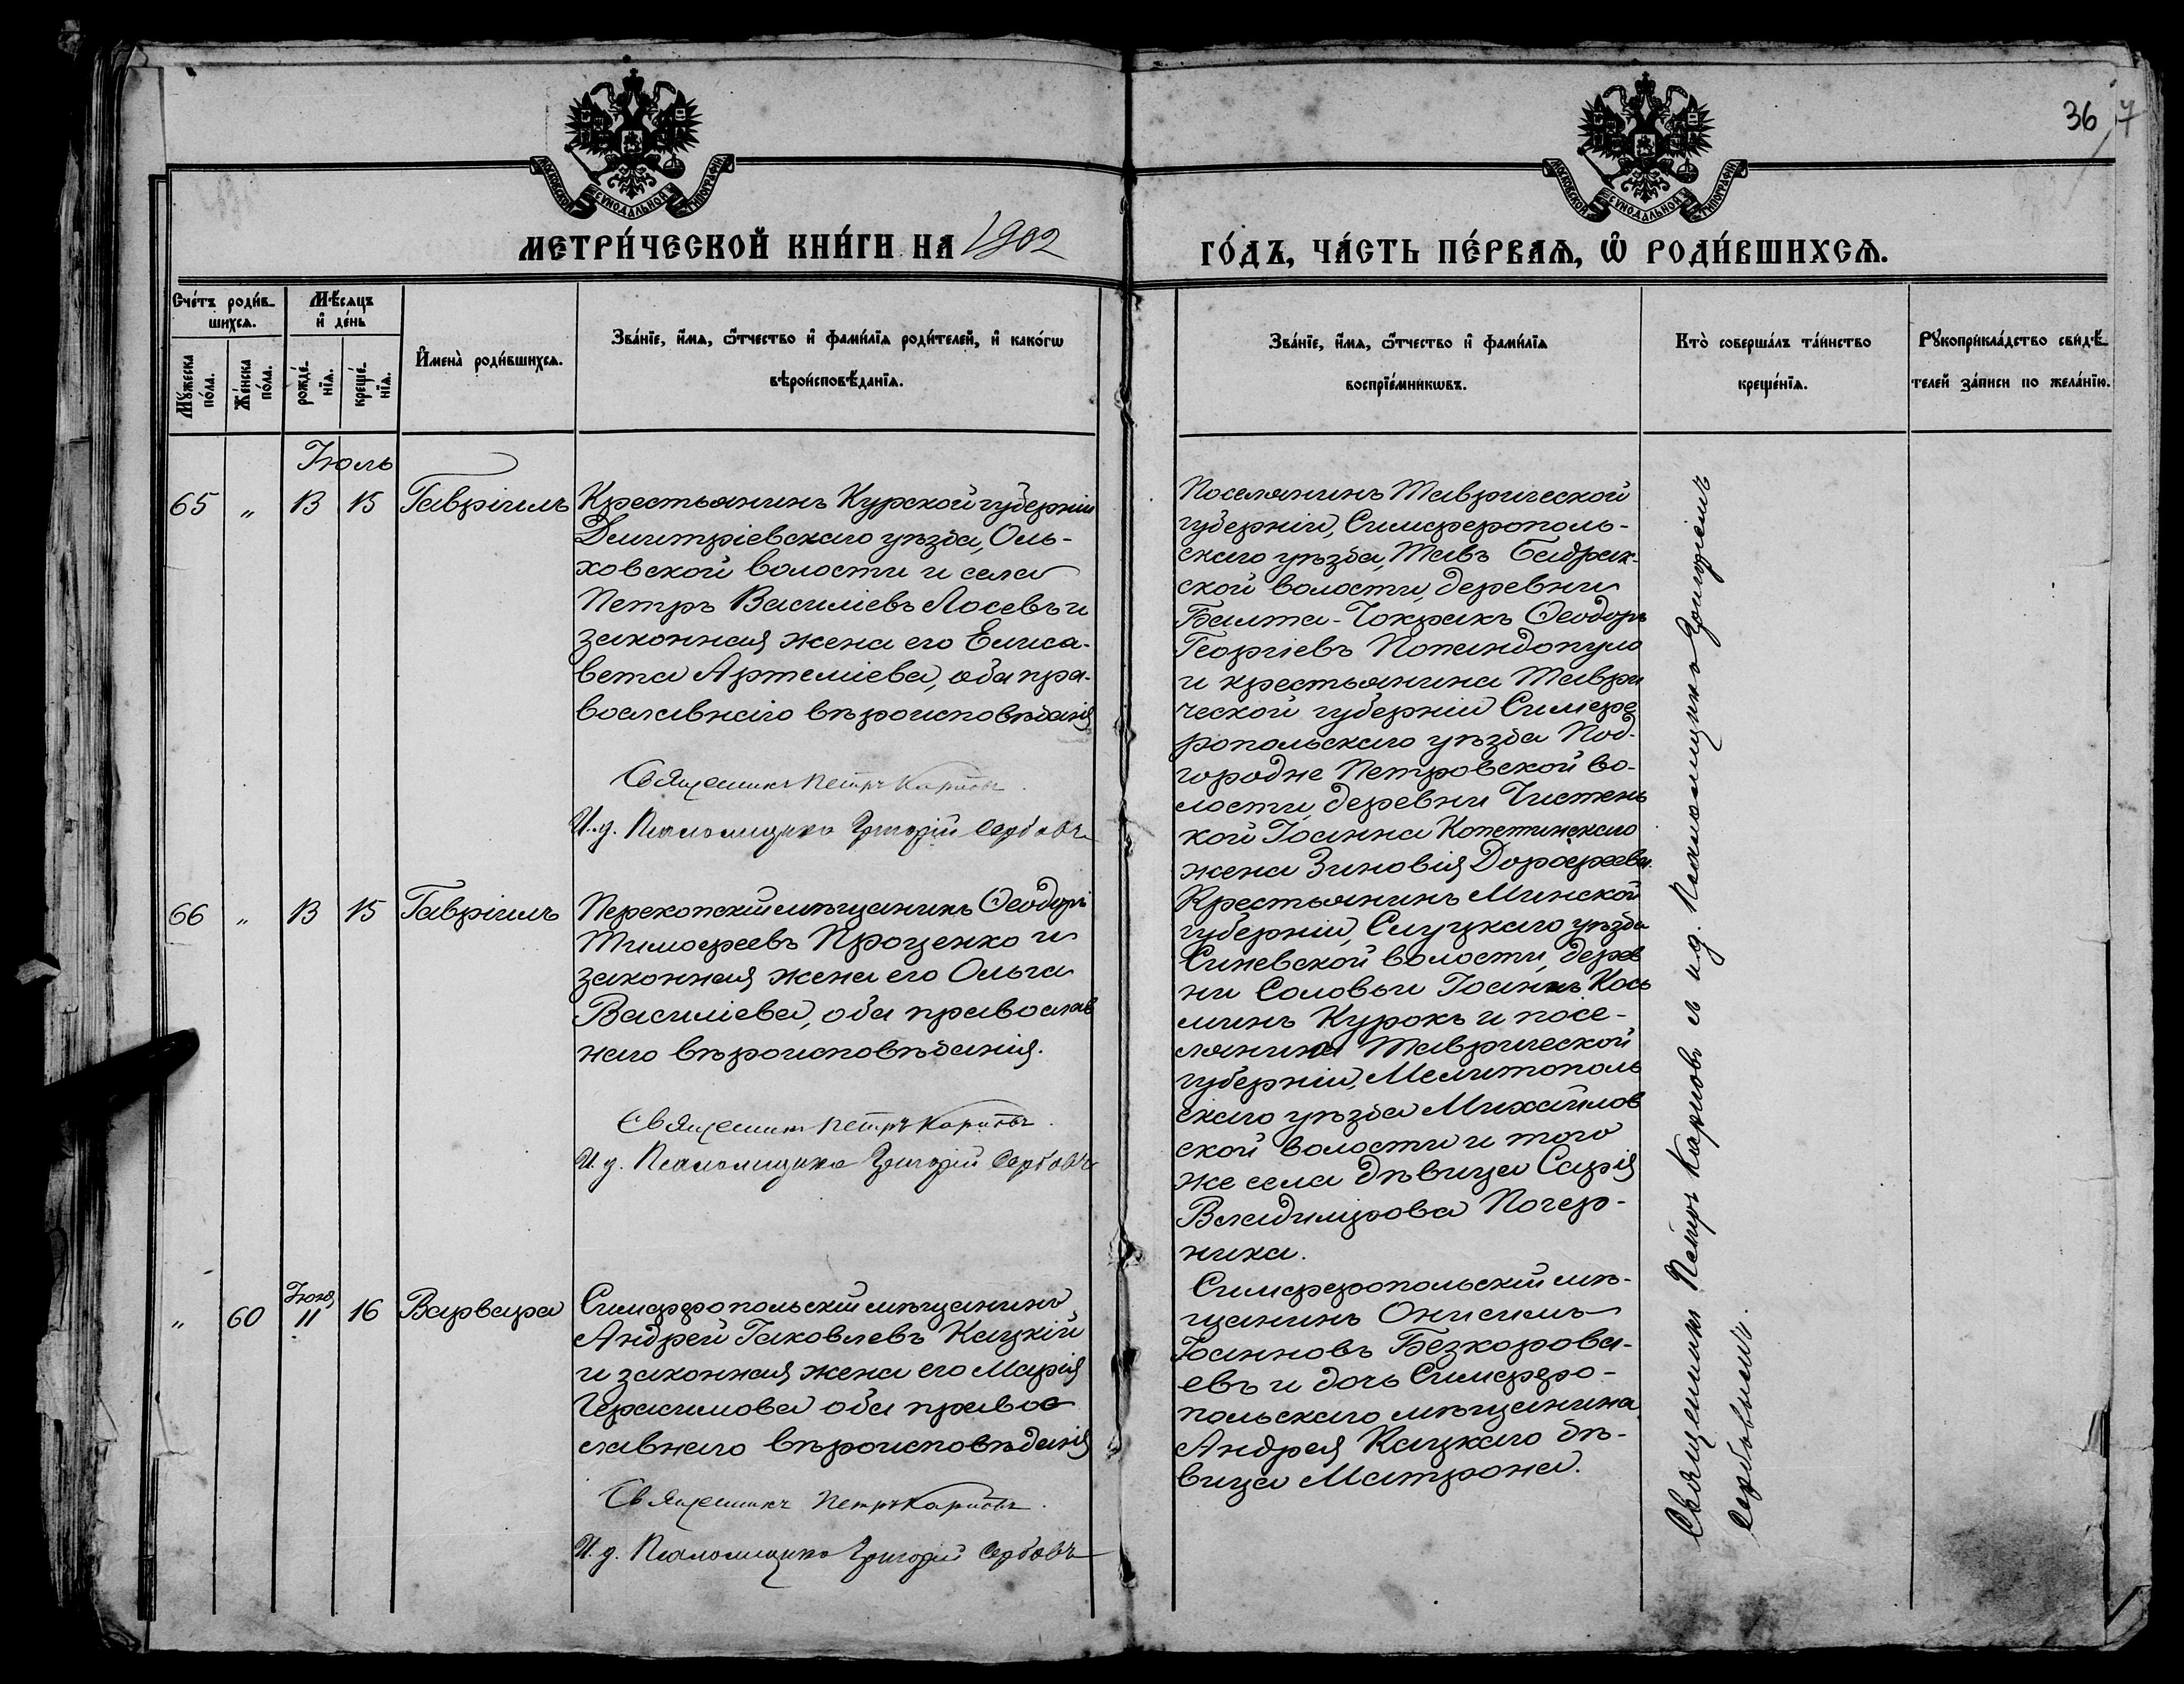 36
7
МОСКОВСКОЙ СѴНОДАЛЬНОЙ ТИПОГРАФІИ
МОСКОВСКОЙ СѴНОДАЛЬНОЙ ТИПОГРАФІИ
МЕТРИ́ЧЕСКОЙ КНИ́ГИ НА 1902
ГО́ДЪ, ЧА́СТЬ ПЕ́РВАѦ, Ѽ РОДИ́ВШИХСѦ.
Сче́тъ роди́в-
шихсѧ.
Мꙋ́жеска по́ла.
Же́нска по́ла.
Мѣ́сяцъ
и҆ де́нь
рожде́-
нїѧ.
креще́-
нїѧ.
И҆мена̀ роди́вшихсѧ.
Зва́нїе, и҆́мѧ, ѻ҆́тчество и҆ фамѝлїѧ роди́телей, и҆ како́гѡ
вѣроисповѣ́данїѧ.
Зва́нїе, и҆́мѧ, ѻ҆́тчество и҆ фамѝлїѧ
воспрїе́мникѡвъ.
Кто̀ соверша́лъ та́инство
креще́нїѧ.
Рꙋкоприкла́дство свидѣ́-
телей за́писи по жела́нїю.
Іюль
65 " 13 15 Гавріилъ
Крестьянинъ Курской губерніи
Димитріевскаго уѣзда, Оль-
ховской волости и села
Петръ Василіевъ Лосевъ и
законная жена его Елиса-
вета Артеміева, оба пра-
вославнаго вѣроисповѣданія
Священникъ Петръ Карповъ.
И. д. Псаломщика Григорій Сербовъ
Поселянинъ Таврической
губерніи, Симферополь-
скаго уѣзда, Тавъ Бадрак-
ской волости, деревни
Балта-Чокракъ Ѳеодоръ
Георгіевъ Попандопуло
и крестьянина Таври
ческой губерніи Симфе
ропольскаго уѣзда Под-
городне Петровской во-
лости, деревни Чистень
кой Іоанна
жена Зиновія Дороѳеева.
66 " 13 15 Гавріилъ
Перекопскій мѣщанинъ Ѳеодоръ
Тимофеевъ Проценко и
законная жена его Ольга
Василіева, оба православ
наго вѣроисповѣданія.
Священникъ Петръ Карповъ.
И. д. Псаломщика Григорій Сербовъ
Крестьянинъ Минской
губерніи, Слуцкаго уѣзда
Синевской волости, дерев
ни Соловьи Іоаннъ Кось
минъ Курокъ и посе-
лянина Таврической
губерніи, Мелитополь
скаго уѣзда Михайлов
ской волости и того
же села дѣвица Сарія
Владимірова Почер-
ника.
" 60 Іюня 11 16 Варвара
Симферопольскій мѣщанинъ
Андрей Іаковлевъ Кацкій
и законная жена его Марія
Герасимова оба правос
лавнаго вѣроисповѣданія
Священникъ Петръ Карповъ.
И. д. Псаломщика Григорій Сербовъ
Симферопольскій мѣ-
щанинъ Онисимъ
Іоанновъ Безкорова-
евъ и дочь Симферо-
польскаго мѣщанина
Андрея Кацкаго дѣ-
вица Матрона.
Священникъ Петръ Карповъ съ и. д. Псаломщика Григоріемъ
Сербовымъ.